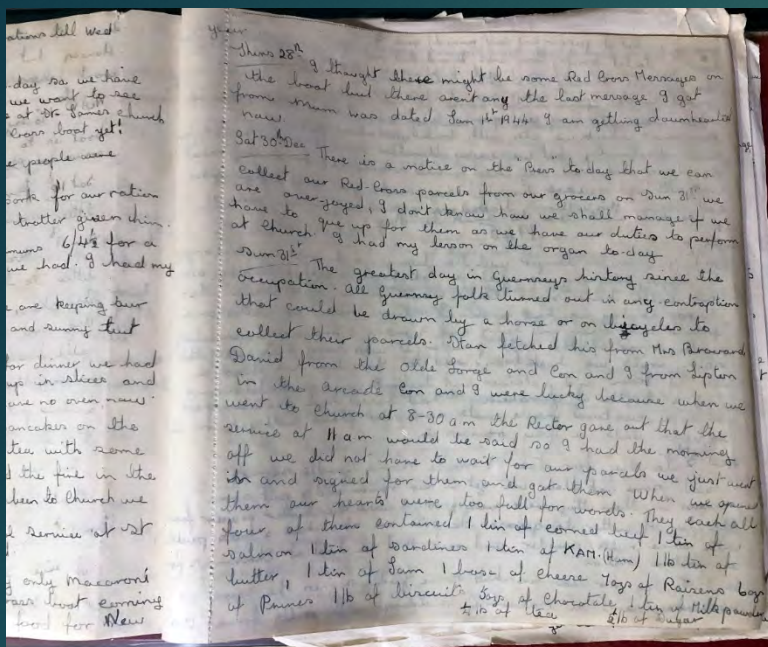 ations till Wed
-day so we have
we want to see
e at St James church
Cross boat yet!
e people were
work for our ration
trotter given him.
6/4½ for a
we had. I had my
e, are keeping our
and sunny but
for dinner we had
up in slices and
are no oven now.
ancakes on the
tea with some
d the fire in the
been to Church we
l service at St
g only Macaroni
ross boat coming
food for New
year
Thurs 28th I thought there might be some Red Cross Messages on
the boat but there arent any the last message I got
from Mum was dated Jan 1944 I am getting downhearted
now.
Sat 30th Dec There is a notice on the "Press" to-day that we can
collect our Red-Cross parcels from our grocers on Sun 31st we
are overjoyed, I don't know how we shall manage if we
have to que up for them as we have our duties to perform
at Church. I had my lesson on the organ to-day
Sun 31st The greatest day in Guernseys history since the
occupation. All Guernsey folk turned out in any contraption
that could be drawn by a horse or on bicycles to
collect their parcels. Stan fetched his from Mrs Brouard
David from the Olde Forge and Con and I from Lipton
in the arcade Con and I were lucky because when we
went to Church at 8-30 am the Rector gave out that the
service at 11 am would be said so I had the morning
off we did not have to wait for our parcels we just went
in and signed for them and got them. When we opened
them our hearts were too full for words. They each all
four of them contained 1 tin of corned beef 1 tin of
salmon 1 tin of sardines 1 tin of KAM. (Ham) 1 lb tin of
butter, 1 tin of Jam 1 box of cheese 7ozs of Raisens 6ozs
of Prunes 1 lb of biscuits 5ozs of Chocolate 1 tin of Milk powder
¼ lb of tea ½ lb of Sugar